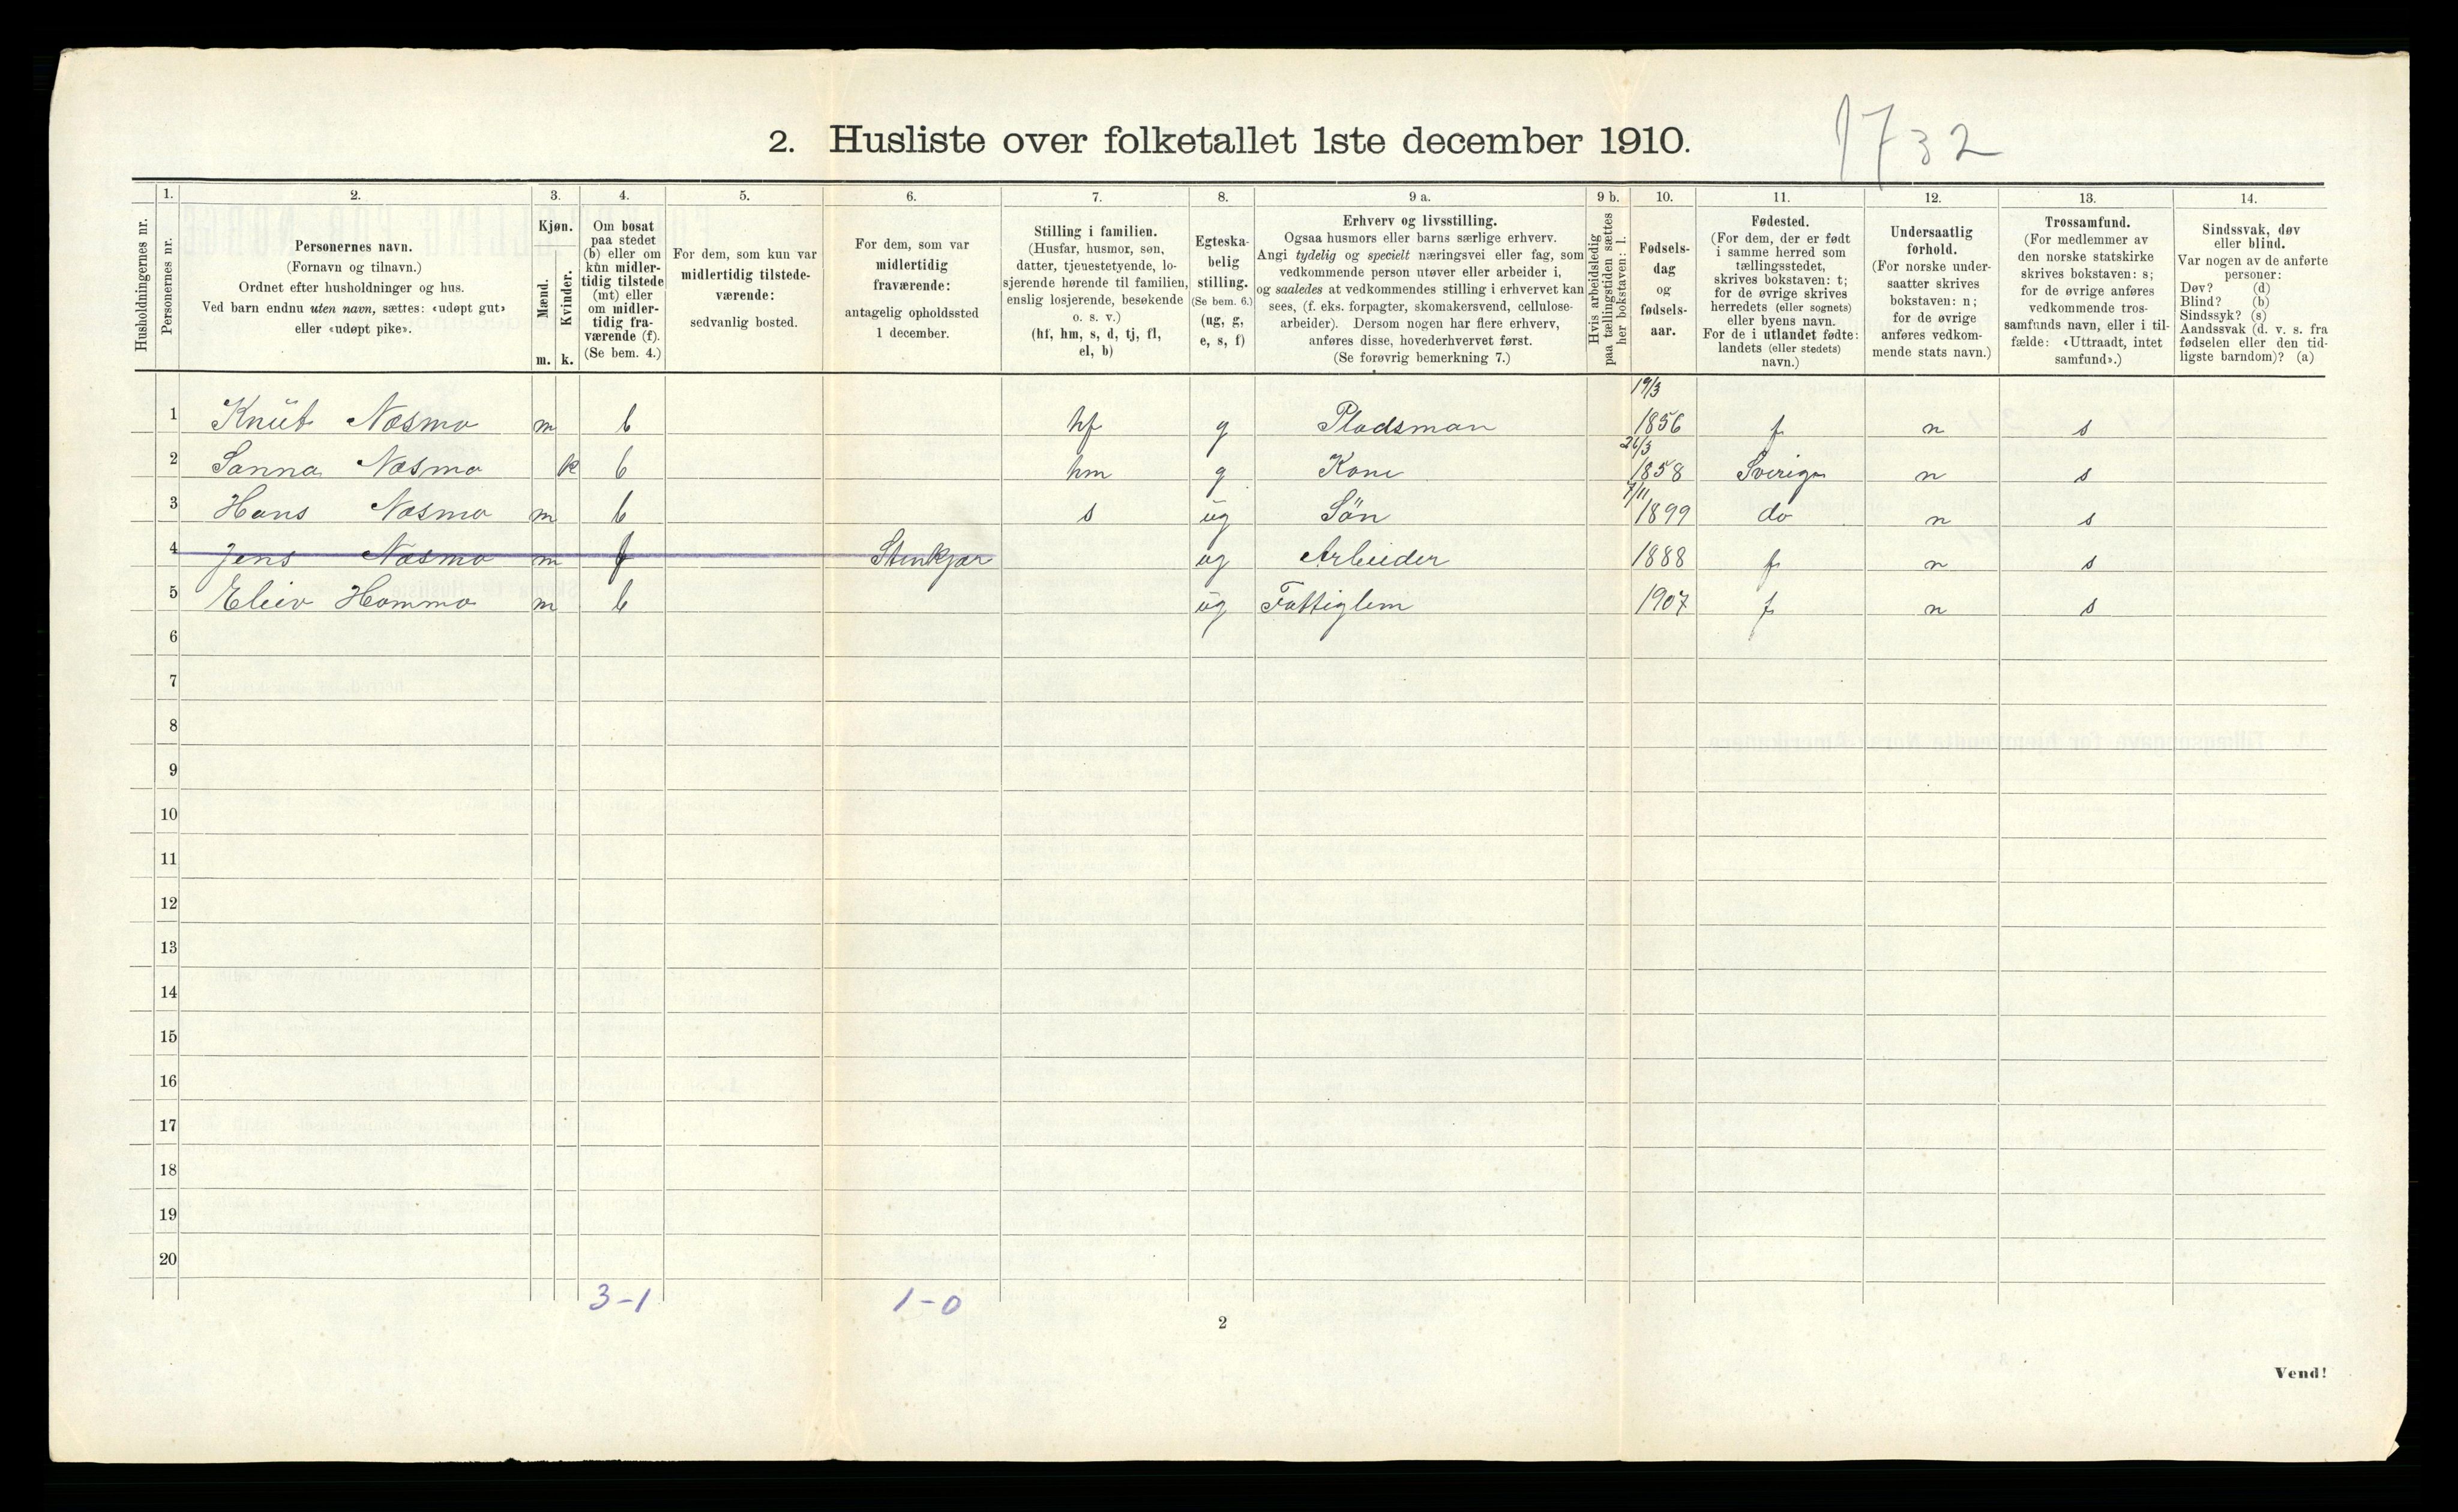 2. Husliste over folketallet 1ste december 1910.
1732
Husholdningernes nr.
1.
Personernes nr.
2.
Personernes navn.
(Fornavn og tilnavn.)
Ordnet efter husholdninger og hus.
Ved barn endnu uten navn, sættes: «udøpt gut»
eller «udøpt pike».
3.
Kjøn.
Mænd.
Kvinder.
m. k.
4.
Om bosat
paa stedet
(b) eller om
kun midler-
tidig tilstede
(mt) eller
om midler-
tidig fra-
værende (f).
(Se bem. 4.)
5.
For dem, som kun var
midlertidig tilstede-
værende:
sedvanlig bosted.
6.
For dem, som var
midlertidig
fraværende:
antagelig opholdssted
1 december.
7.
Stilling i familien.
(Husfar, husmor, søn,
datter, tjenestetyende, lo-
sjerende hørende til familien,
enslig losjerende, besøkende
o. s. v.)
(hf, hm, s, d, tj, fl,
el, b)
8.
Egteska-
belig
stilling.
(Se bem. 6.)
(ug, g,
e, s, f)
9 a.
Erhverv og livsstilling.
Ogsaa husmors eller barns særlige erhverv.
Angi tydelig og specielt næringsvei eller fag, som
vedkommende person utøver eller arbeider i,
og saaledes at vedkommendes stilling i erhvervet kan
sees, (f. eks. forpagter, skomakersvend, cellulose-
arbeider). Dersom nogen har flere erhverv,
anføres disse, hovederhvervet først.
(Se forøvrig bemerkning 7.)
9 b.
Hvis arbeidsledig
paa tællingstiden sættes
her bokstaven: l.
10.
Fødsels-
dag
og
fødsels-
aar.
11.
Fødested.
(For dem, der er født
i samme herred som
tællingsstedet,
skrives bokstaven: t;
for de øvrige skrives
herredets (eller sognets)
eller byens navn.
For de i utlandet fødte:
landets (eller stedets)
navn.)
12.
Undersaatlig
forhold.
(For norske under-
saatter skrives
bokstaven: n;
for de øvrige
anføres vedkom-
mende stats navn.)
13.
Trossamfund.
(For medlemmer av
den norske statskirke
skrives bokstaven: s;
for de øvrige anføres
vedkommende tros-
samfunds navn, eller i til-
fælde: «Uttraadt, intet
samfund».)
14.
Sindssvak, døv
eller blind.
Var nogen av de anførte
personer:
Døv? (d)
Blind? (b)
Sindssyk? (s)
Aandssvak (d. v. s. fra
fødselen eller den tid-
ligste barndom)? (a)
1 Knut Næsmo m b hf g Pladsman 19/3 1856 t n s
2 Sanna Næsmo k b hm g Kone 26/3 1858 Sverige n s
3 Hans Næsmo m b s ug Søn 7/11 1899 do n s
4 Jens Næsmo m f Stenkjær ug Arbeider 1888 t n s
5 Eliev Hommo m b ug Fattiglem 1907 t n s
6
7
8
9
10
11
12
13
14
15
16
17
18
19
20
3-1 1-0
2
Vend!